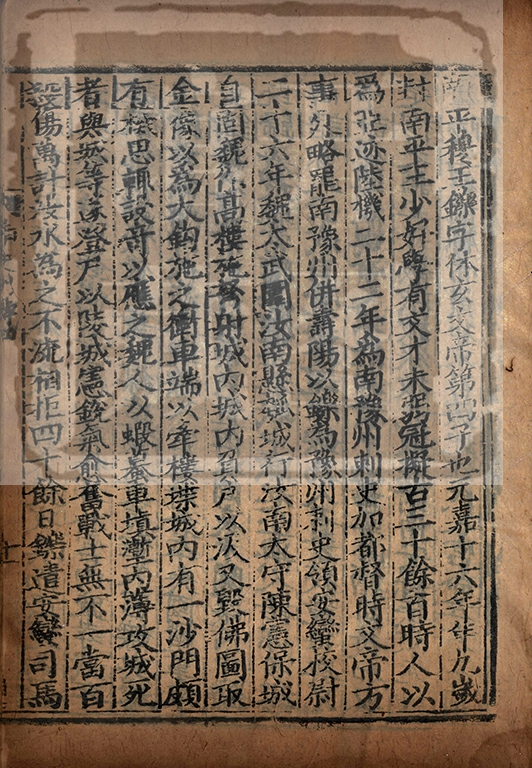 南平穆王鑠字休玄文帝第四子也元嘉十六年年九歲
封南平王少好學有文才未弱冠擬古三十餘首時人以
為亞迹陸機二十二年為南豫州刺史加都督時文帝方
事外略罷南豫州併壽陽以鑠為豫州刺史領安蠻校尉
二十六年魏太武圍汝南縣瓠城行汝南太守陳憲保城
自固魏作高樓施弩射城內城內負戶以汲又毀佛圖取
金像以為大鈎施之衝車端以牽樓堞城內有一沙門頗
有機思輒設奇以應之魏人以蝦蟇車填塹內薄攻城死
者與城等遂登尸以陵城憲銳氣愈奮戰士無不一當百
殺傷萬計汝水為之不流相拒四十餘日鑠遣安蠻司馬